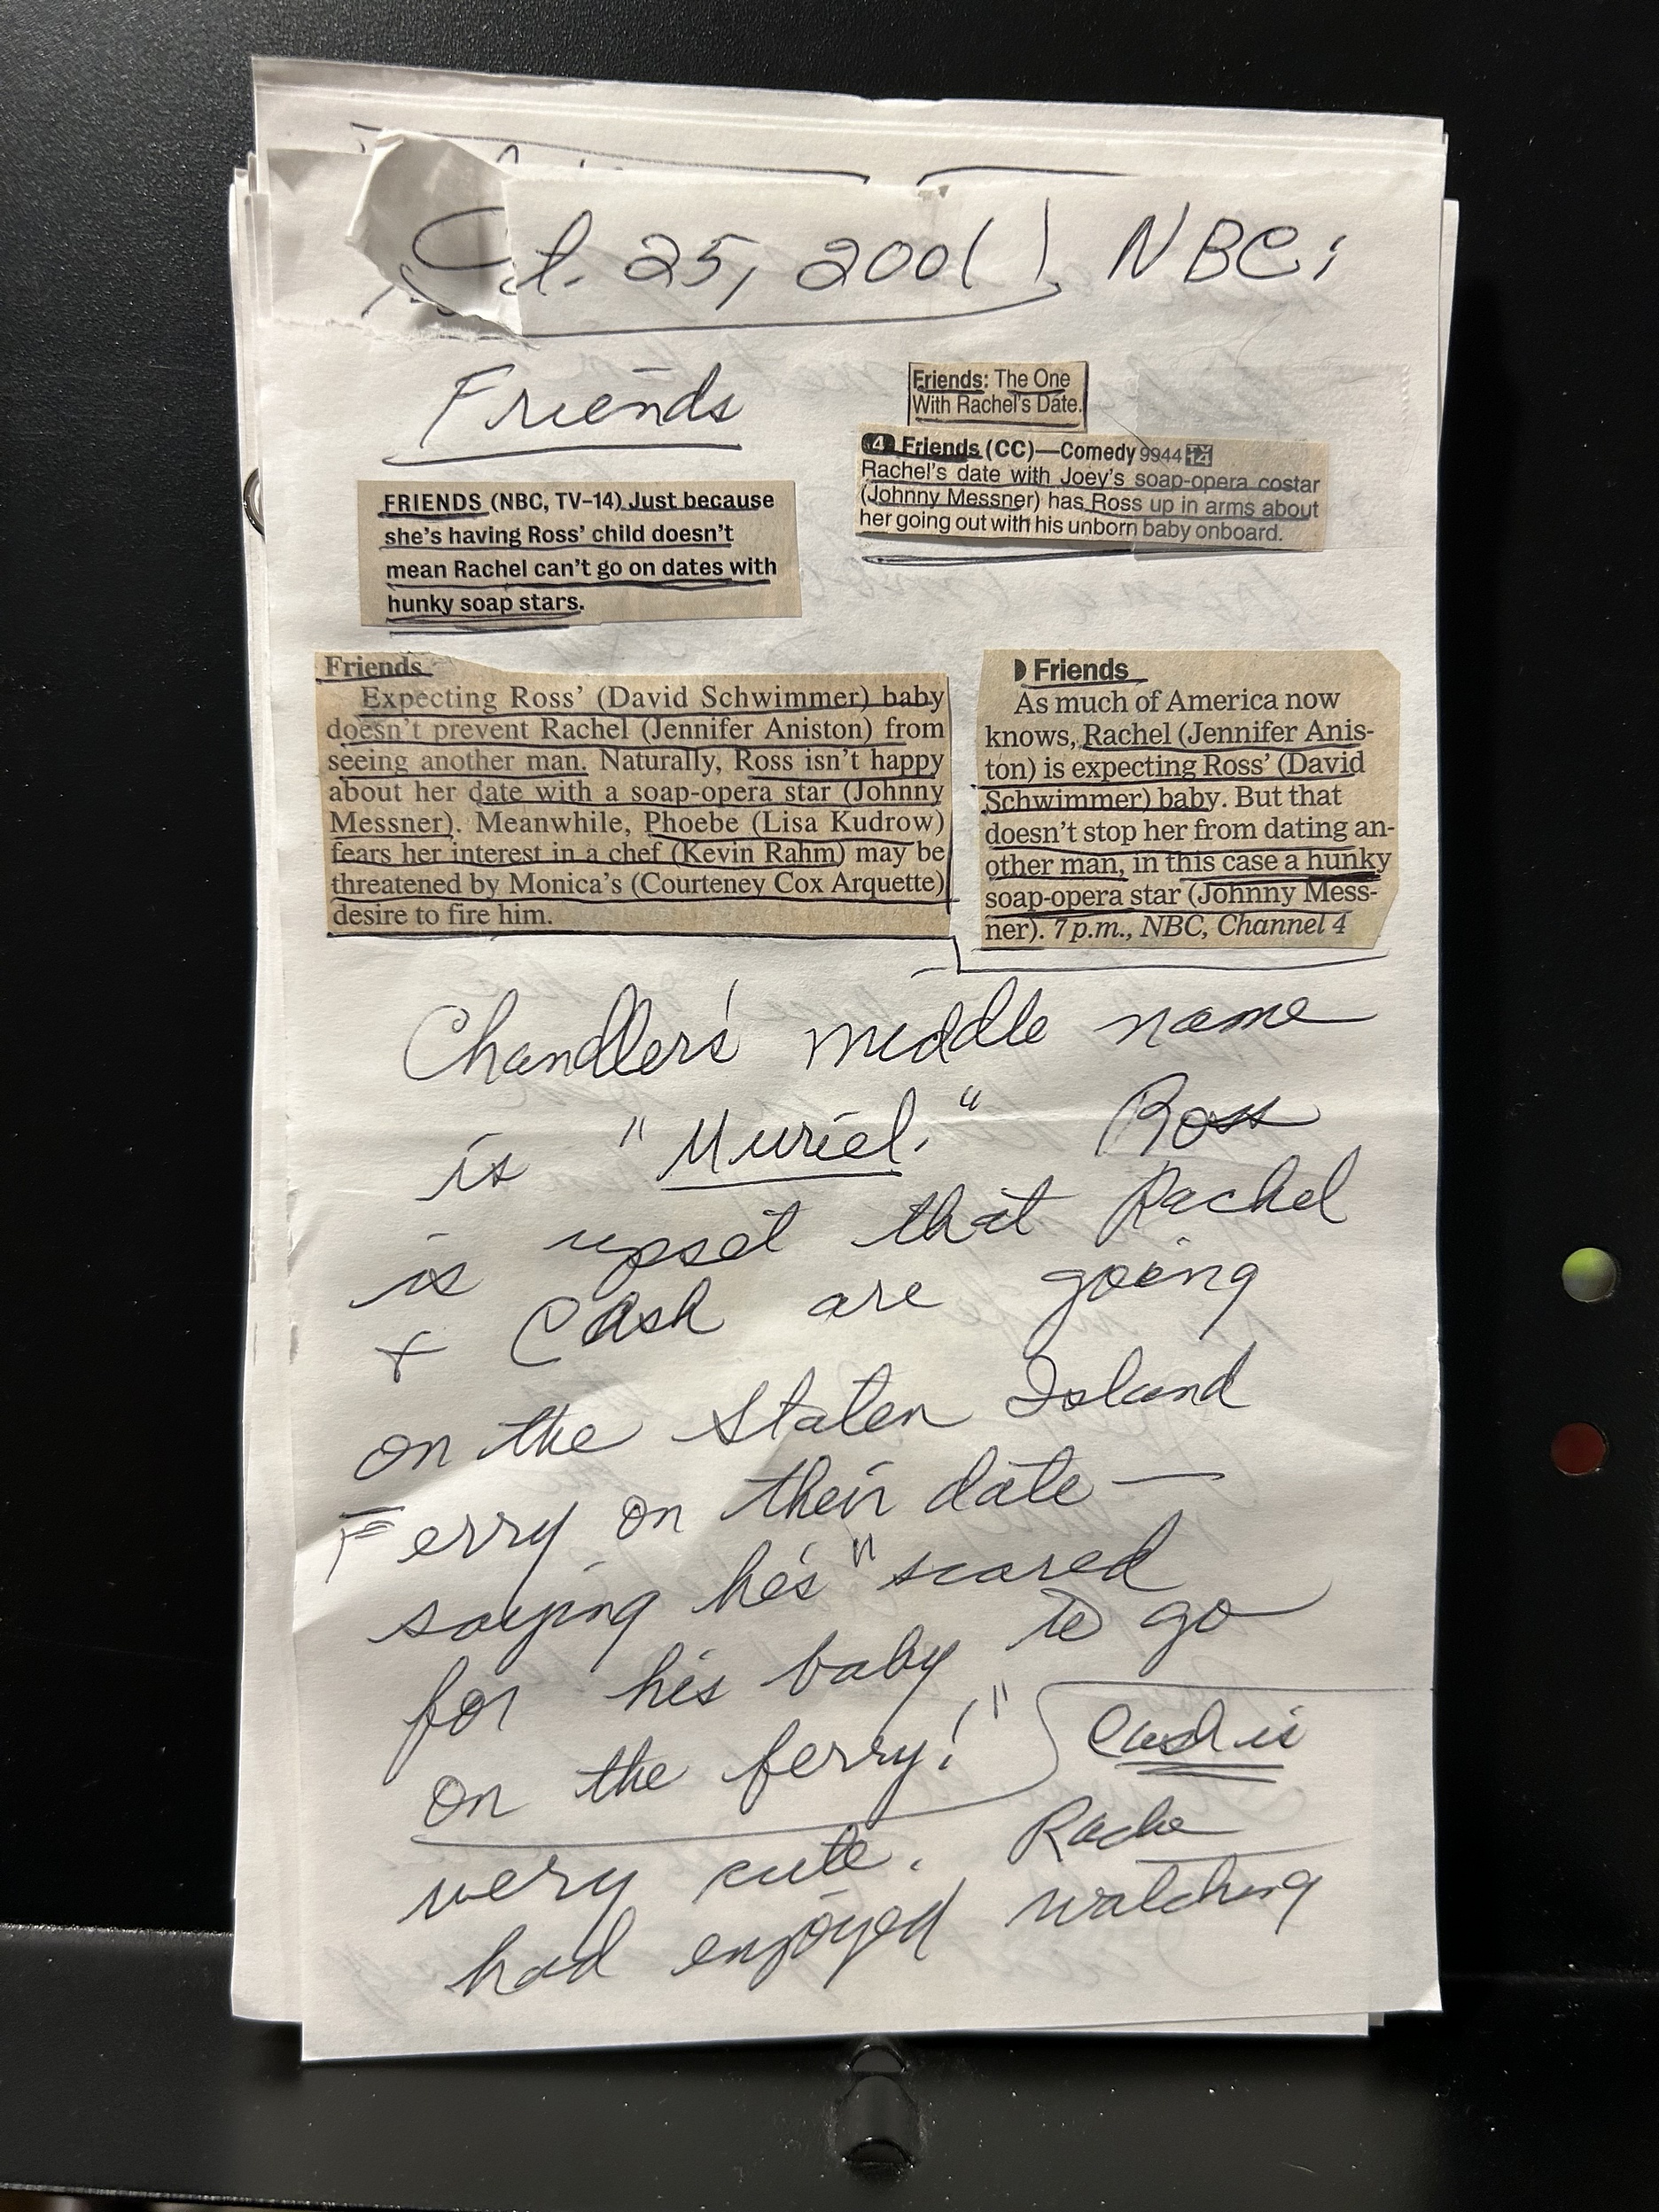 Oct. 25, 2001 NBC;
Friends
Friends: The One
With Rachel's Date.
4 Friends (CC)—Comedy 9944 TV 14
Rachel's date with Joey's soap-opera costar
(Johnny Messner) has Ross up in arms about
her going out with his unborn baby onboard.
FRIENDS (NBC, TV–14) Just because
she's having Ross' child doesn't
mean Rachel can't go on dates with
hunky soap stars.
Friends
Expecting Ross' (David Schwimmer) baby
doesn't prevent Rachel (Jennifer Aniston) from
seeing another man. Naturally, Ross isn't happy
about her date with a soap-opera star (Johnny
Messner). Meanwhile, Phoebe (Lisa Kudrow)
fears her interest in a chef (Kevin Rahm) may be
threatened by Monica's (Courteney Cox Arquette)
desire to fire him.
Friends
As much of America now
knows, Rachel (Jennifer Anis-
ton) is expecting Ross' (David
Schwimmer) baby. But that
doesn't stop her from dating an-
other man, in this case a hunky
soap-opera star (Johnny Mess-
ner). 7 p.m., NBC, Channel 4
Chandler's middle name
is "Muriel." Ross
is upset that Rachel
+ Cash are going
on the Staten Island
Ferry on their date —
saying he's "scared
for his baby to go
on the ferry!" Cash is
very cute. Rache
had enjoyed watching